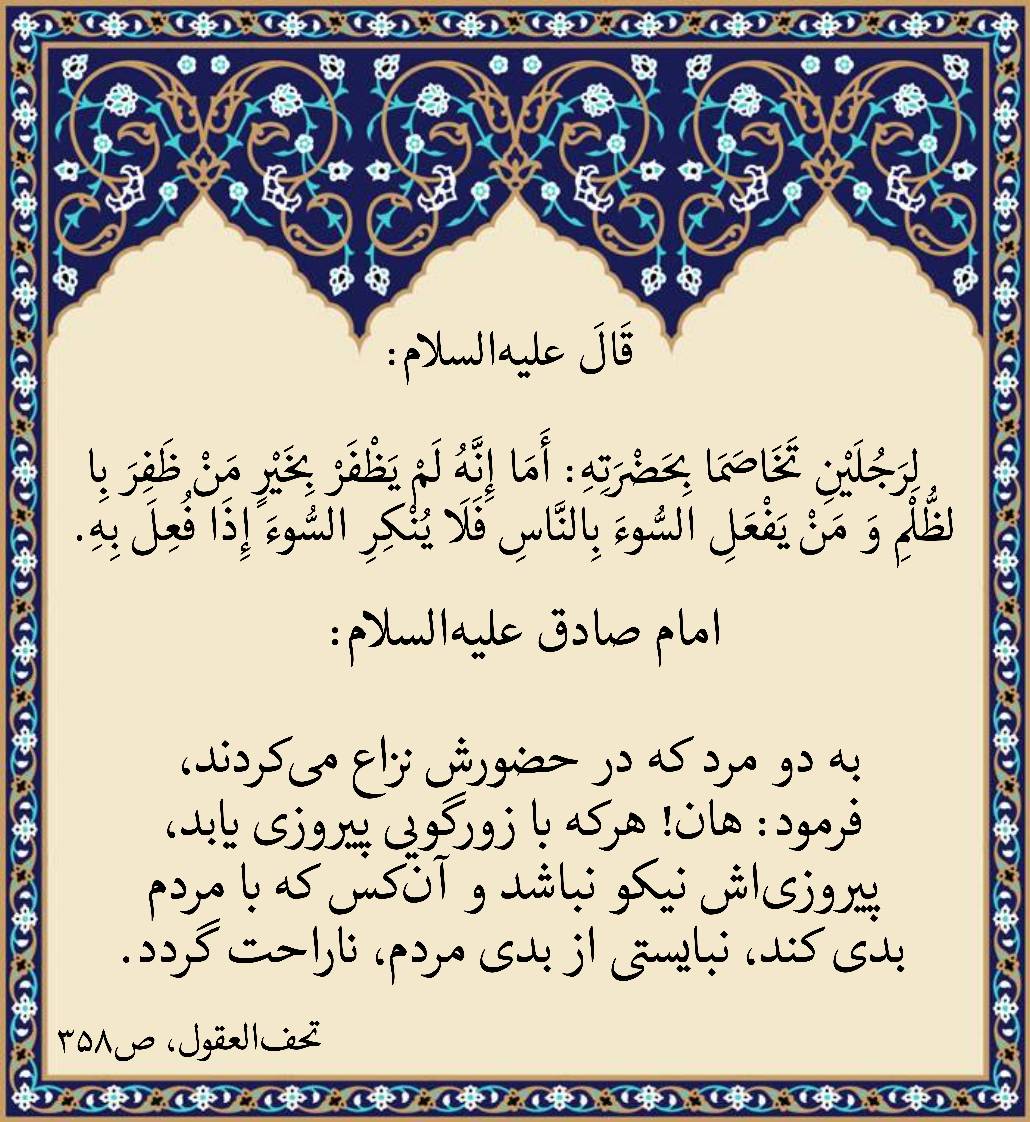 قَالَ علیه‌السلام:
لِرَجُلَيْنِ تَخَاصَمَا بِحَضْرَتِهِ: أَمَا إِنَّهُ لَمْ يَظْفَرْ بِخَيْرٍ مَنْ ظَفِرَ بِا
لظُّلْمِ وَ مَنْ يَفْعَلِ السُّوءَ بِالنَّاسِ فَلَا يُنْكِرِ السُّوءَ إِذَا فُعِلَ بِهِ.
امام صادق علیه‌السلام:
به دو مرد که در حضورش نزاع می‌کردند،
فرمود: هان! هرکه با زورگویی پیروزی یابد،
پیروزی‌اش نیکو نباشد و آن‌کس که با مردم
بدی کند، نبایستی از بدی مردم، ناراحت گردد.
تحف‌العقول، ص۳۵۸